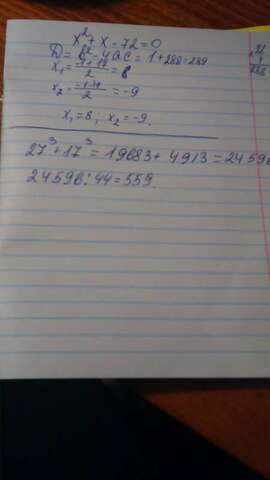 x² + x - 72 = 0
D = b² - 4ac = 1 + 288 = 289
x₁ = (-1+17)/2 = 8
x₂ = (-1-17)/2 = -9
x₁ = 8; x₂ = -9.
27³ + 17³ = 19683 + 4913 = 24596
24596 : 44 = 559.